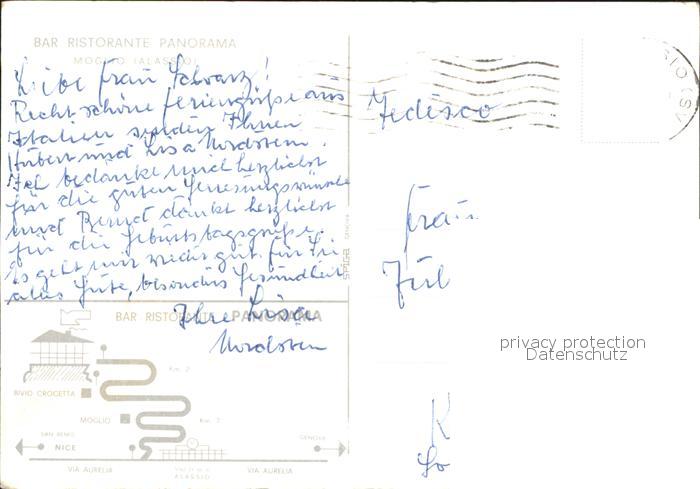 BAR RISTORANTE PANORAMA
MOGLIO (ALASSIO)
Liebe Frau Schwarz!
Recht schöne Feriengrüße aus
Italien senden Ihnen
Hubert und Lisa Nordstern.
Ich bedanke mich herzlichst
für die guten Genesungswünsche
und Bernd dankt herzlichst
für die Geburtstagsgrüße.
Es geht mir wieder gut. Für Sie
alles Gute, besonders Gesundheit
Ihre Lisa
Nordstern
Tedesco
Frau
K
privacy protection
Datenschutz
SPIGA GENOVA
BAR RISTORANTE PANORAMA
Km. 2
BIVIO CROCETTA
MOGLIO
Km. 2
SAN REMO
NICE
GENOVA
VIA AURELIA
ALASSIO
VIA AURELIA